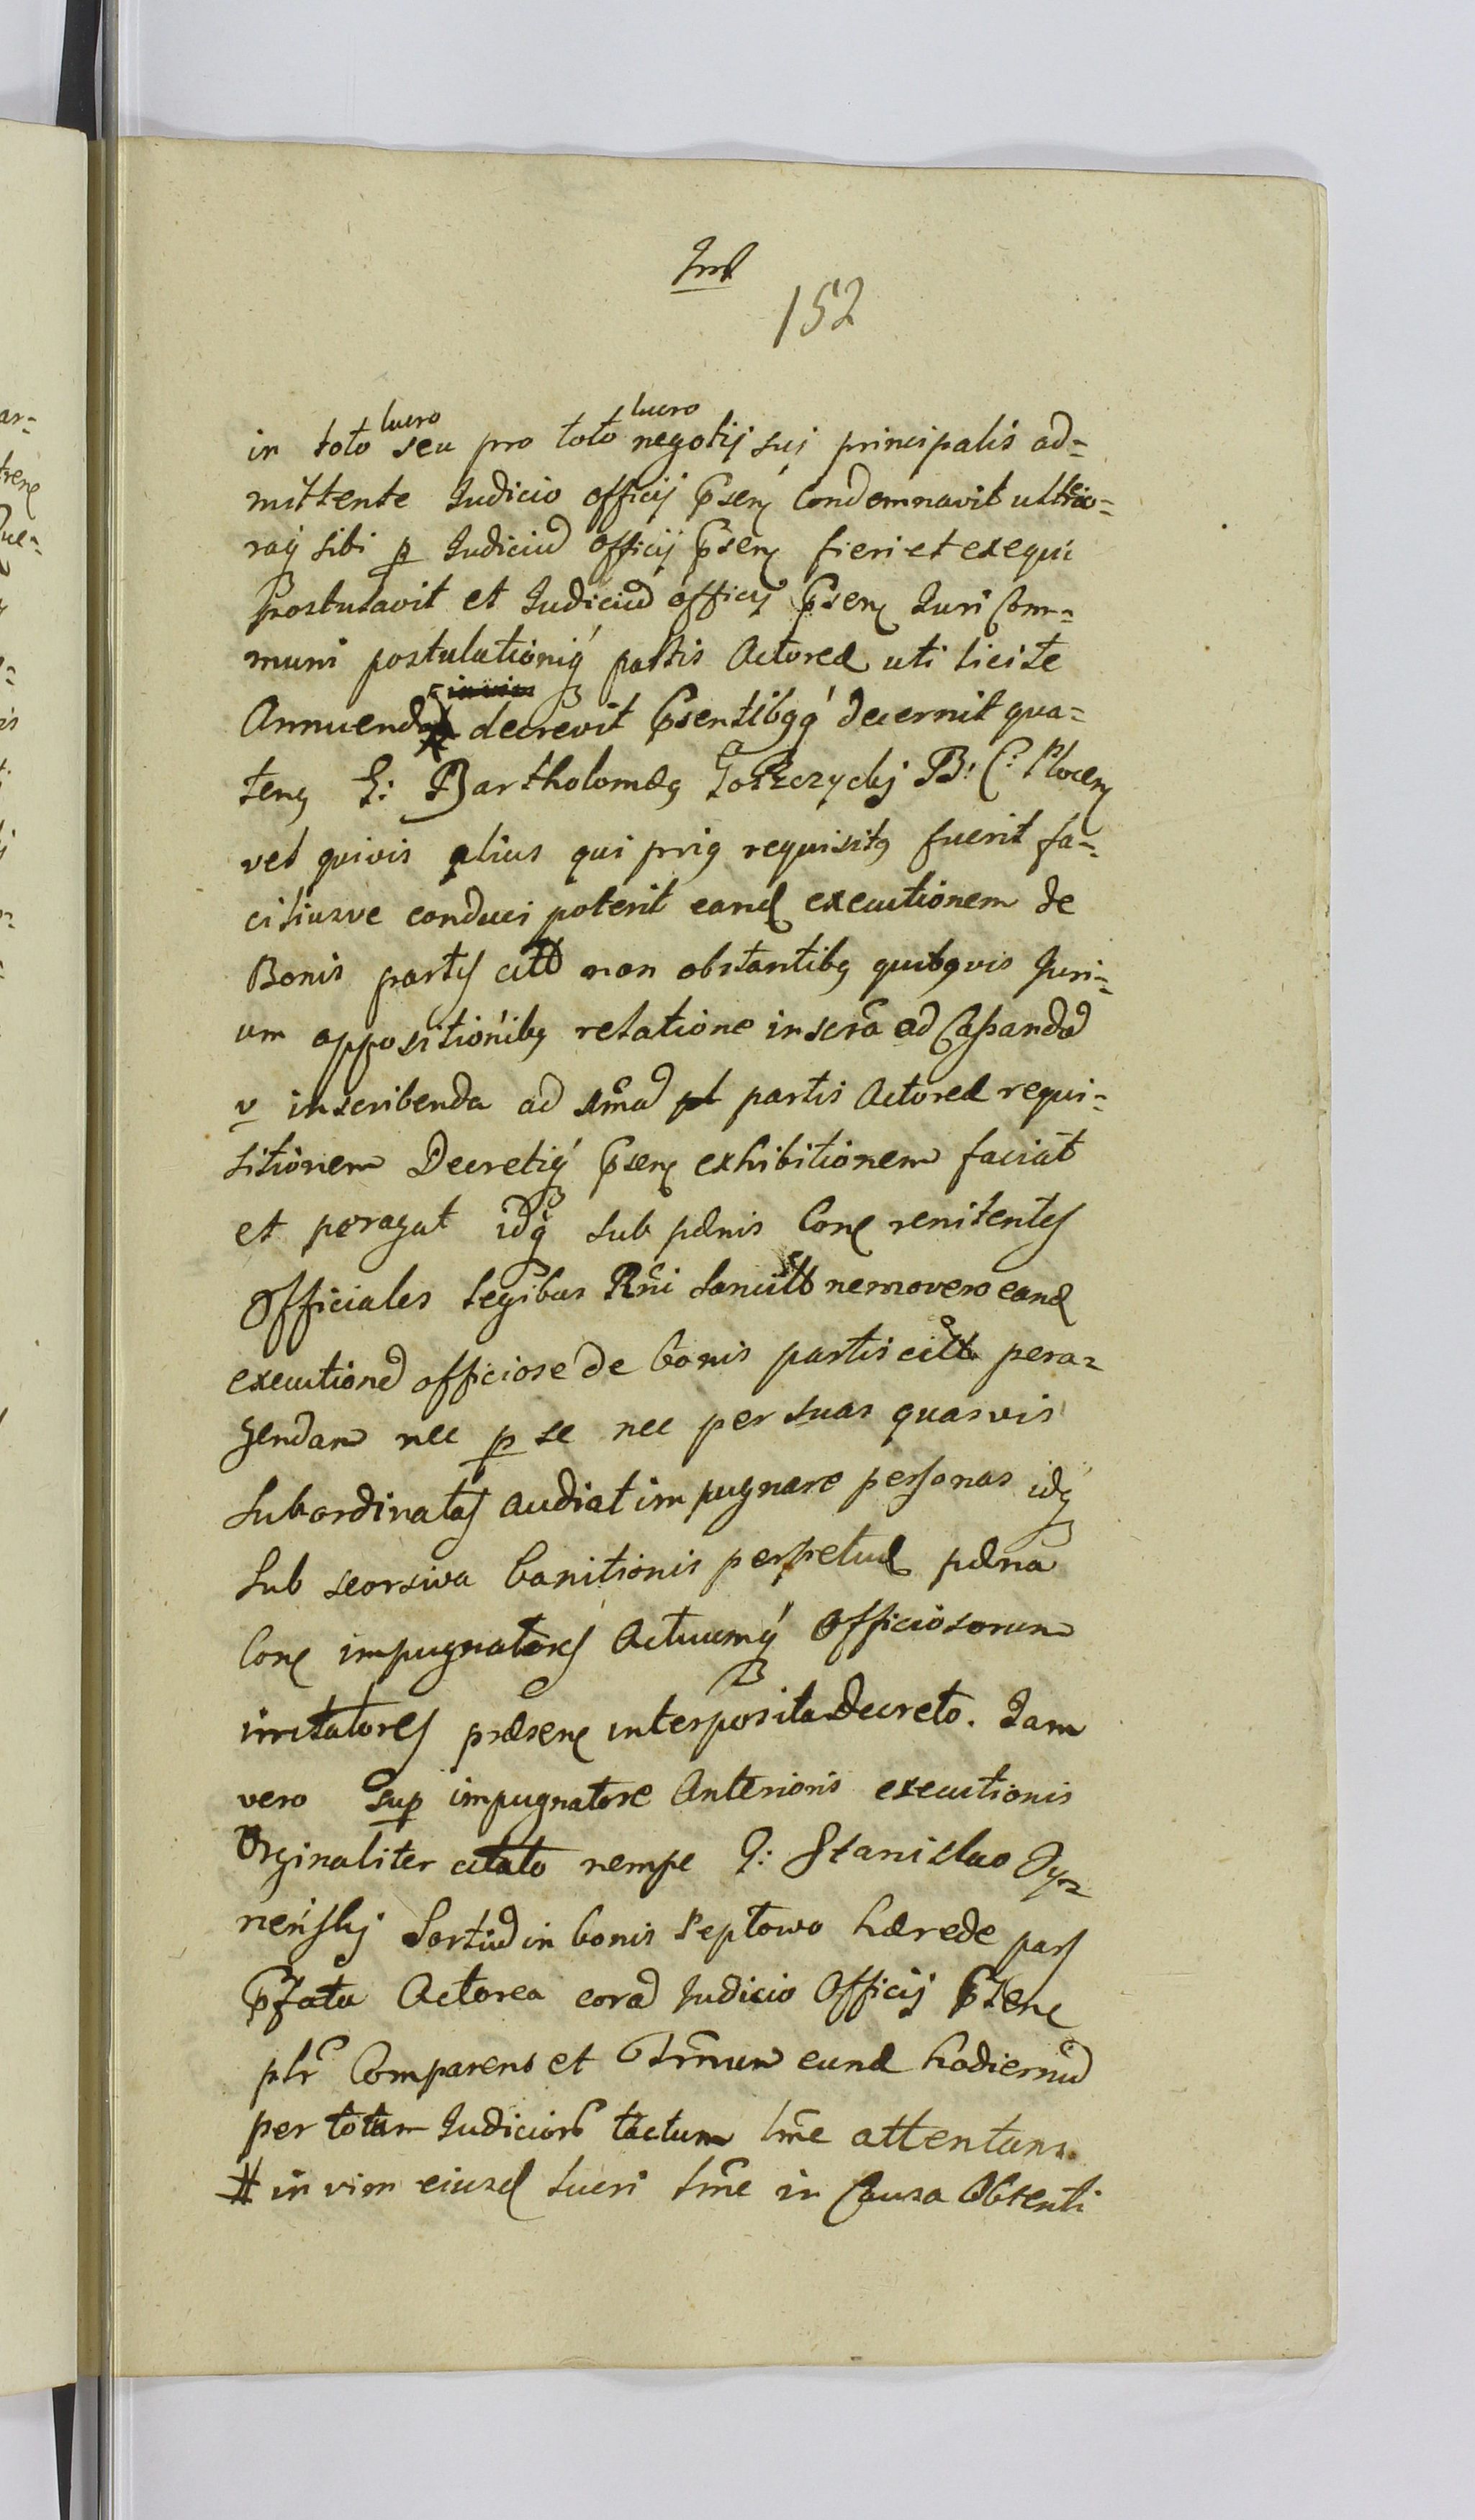 152
in toto lucro seu pro toto lucro negotij sui principalis ad=
mittente Judicio officij psenȩ Condemnavit ulterio=
raq sibi p Judiciu officij psenȩ fieri et exequi
postulavit et Judiciu officij psenȩ Juri Com=
muni postulationiq partis Actoreæ uti licite
Annuendo # decrevit psentibqq decernit qua=
teng G: Bartholomæg Goszczycki B: C: Plocenȩ
vel quivis alius qui prig requisitg fuerit fa=
ciliusve conduci poterit eand executionem de
Bonis partis citt non obstantibg quibgvis Juri=
um oppositionibg relatione inscra ad Cassanda
v inscribenda ad partis Actoreæ requi=
sitionem Decretiq psenȩ exhibitionem faciat
et peragat idq sub pænis Conȩ renitentes
Officiales legibus Rni Sancitt nemo vero eand
execution officiose de bonis partis citt pera=
gendam nec p se nec per suas quasvis
subordinatas audiat impugnare personas idq
sub seorsiva banitionis perpetuæ pæna
Conȩ impugnatores Actuumq Officiosorum
irritatores præsenȩ interposita decreto. Jam
vero sup impugnatore Anterioris executionis
Orginaliter citato nempe G: Stanislao Dy=
neński Sortiu in bonis Septowo hærede pars
pfata Actorea cora Judicio Officij psenȩ
plr Comparens et Trmum eund hodiernu
per totum Judicior tactum lme attentans
# in vim eiusd lucri lme in Causa Obtenti